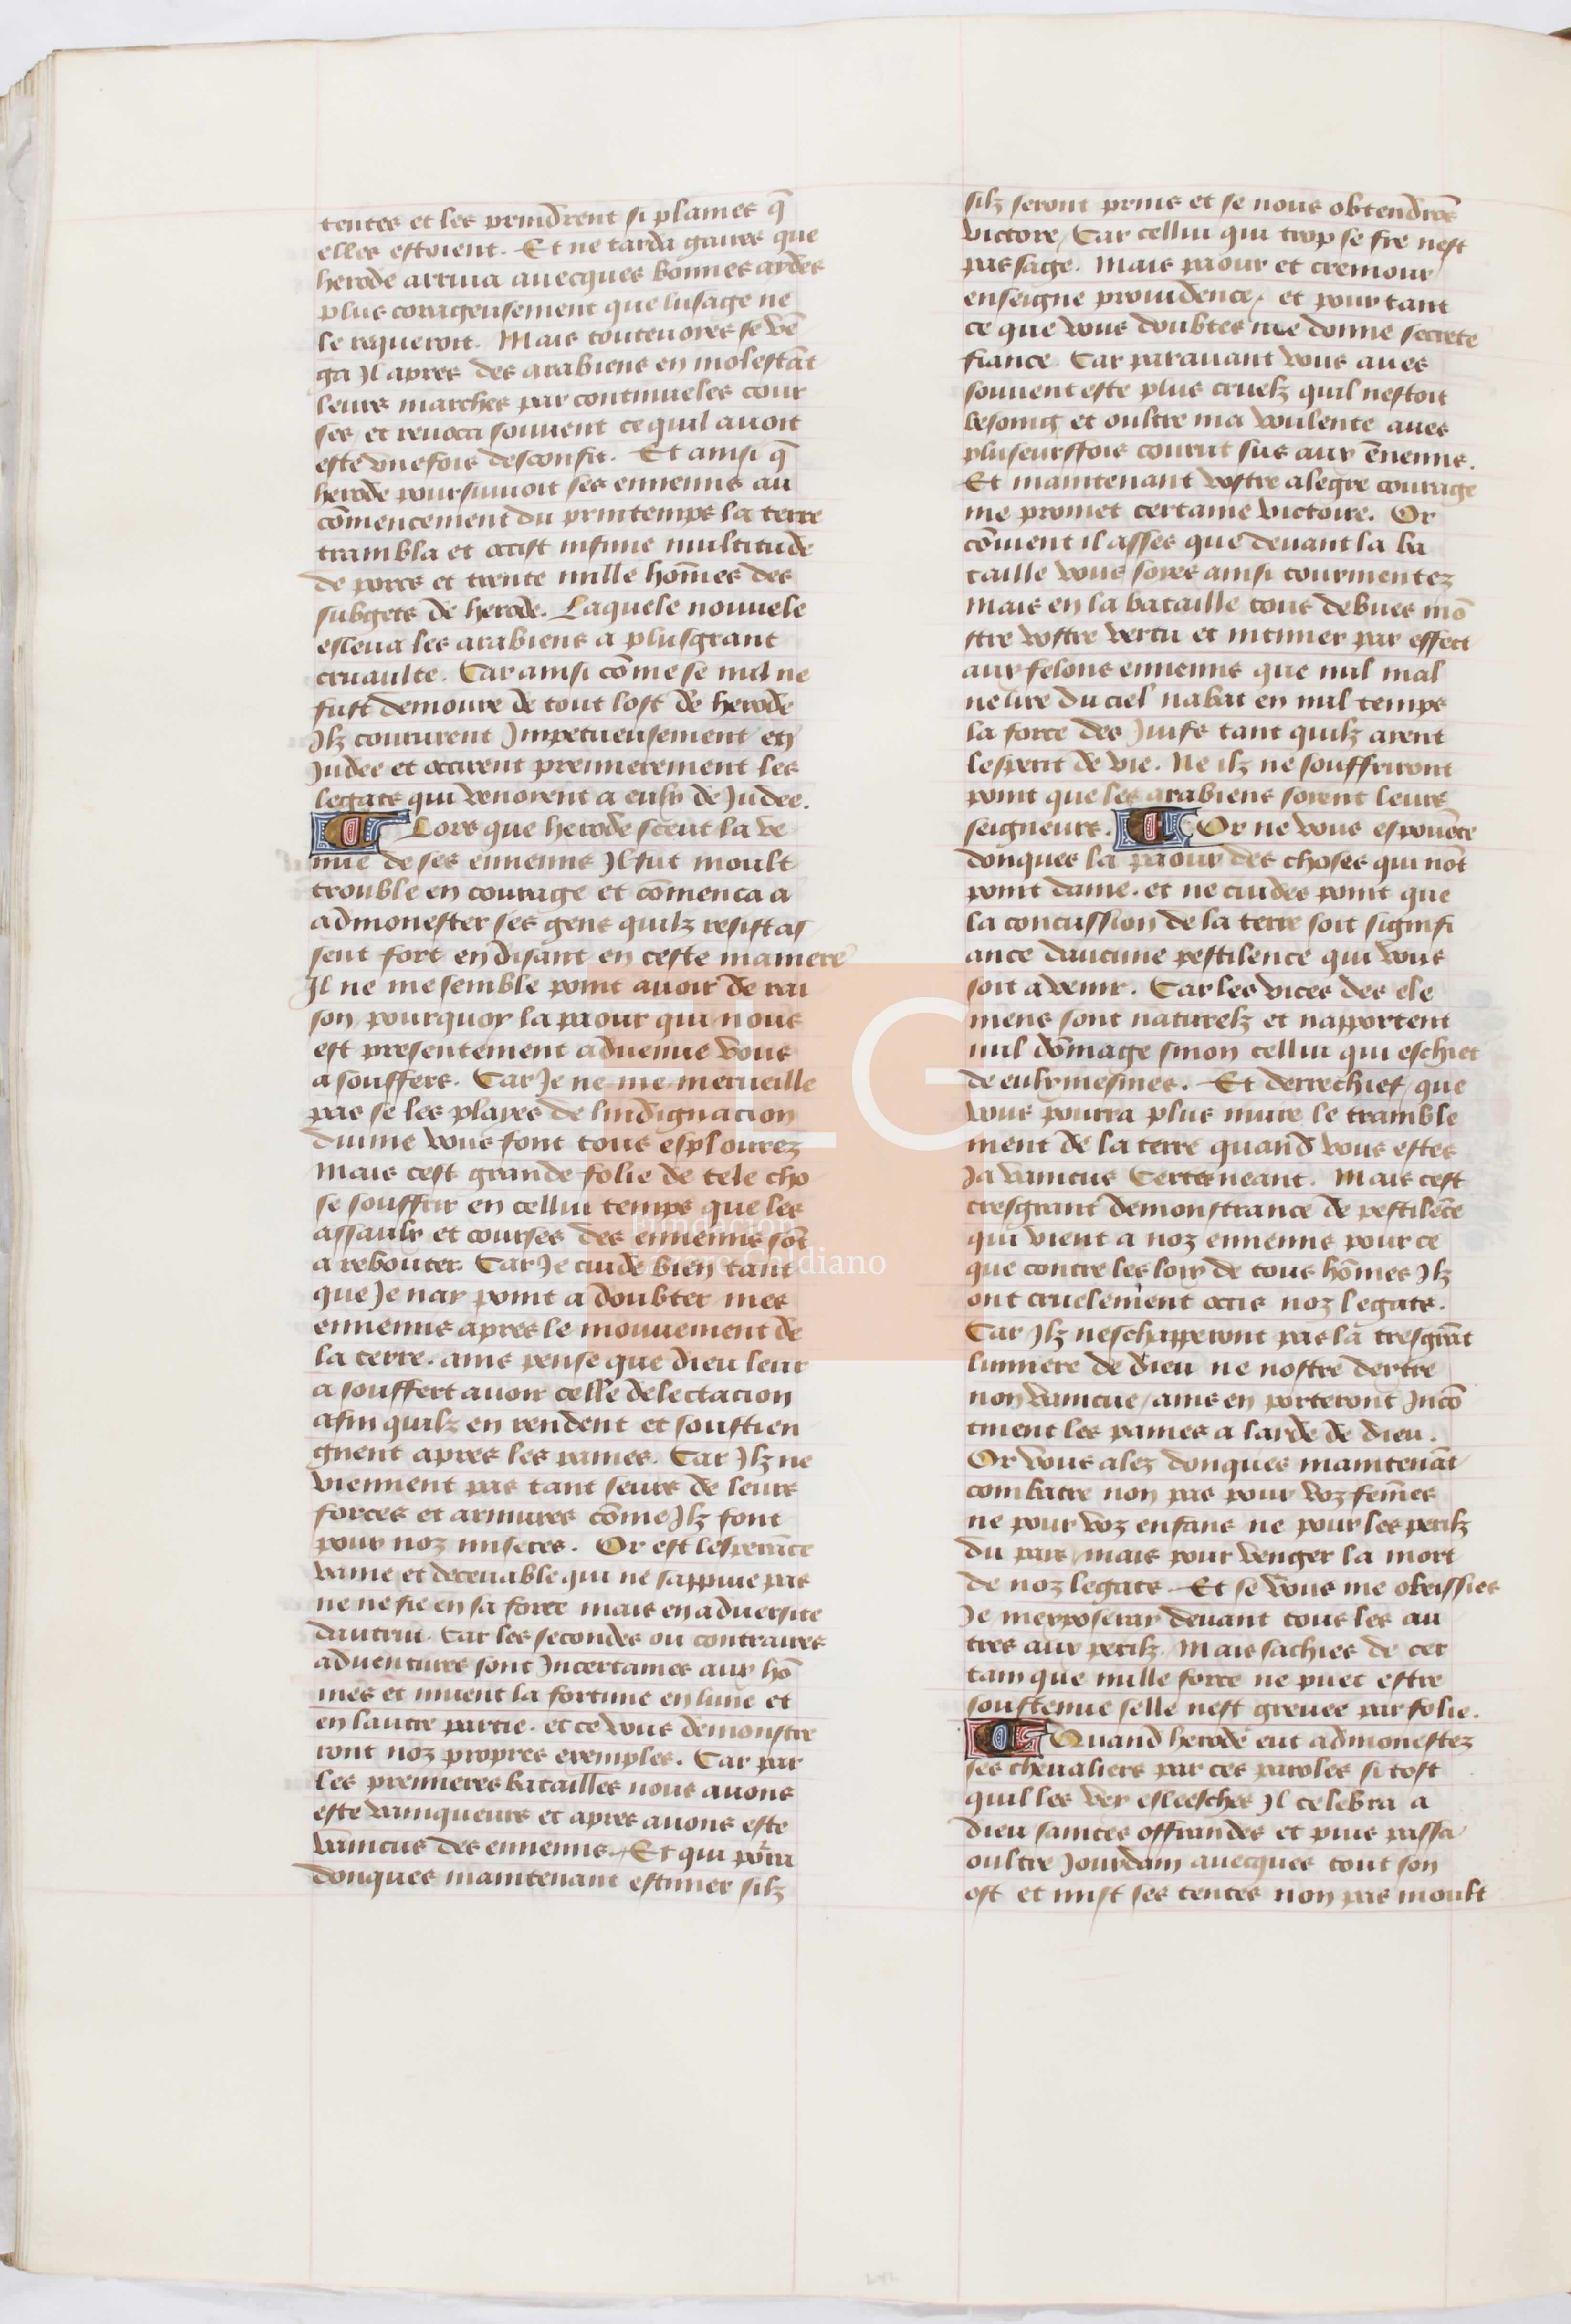 tentes et les prindrent si plaines q̄
elles estoient. Et ne tarda gaires que
herode arriua auecques bonnes aydes
plus corageusement que lusage ne
le requeroit. Mais toutenoies se vē
ga Jl apres des arabiens en molestāt
leurs marches par continueles cour
ses / et reuoca souuent ce quil auoit
este vnefois desconfit. Et ainsi q̄
herode poursuiuoit ses ennemis au
cōmencement du printemps la terre
trambla et occist infinie multitude
de porcs et trente mille hōmes des
subgets de herode. Laquele nouuele
esleua les arabiens a plusgrant
cruaulte. Car ainsi cōme se nul ne
fust demoure de tout lost de herode
Jlz coururent Jmpetueusement en
Judee et occirent premierement les
legats qui venoient a eulx de Judee.
Lors que herode sceut la ve
nue de ses ennemis Jl fut moult
trouble en courage et cōmenca a
admonester ses gens quilz resistas
sent fort en disant en ceste maniere
Jl ne me semble point auoir de rai
son / pourquoy la paour qui nous
est presentement aduenue vous
a souffers. Car Je ne me merueille
pas se les playes de lindignacion
diuine vous font tous esplourez
Mais cest grande folie de tele cho
se souffrir en cellui temps que les
assaulx et courses des ennemis sōt
a rebouter. Car Je cuide bien tant
que Je nay point a doubter mes
ennemis apres le mouuement de
la terre. ains pense que dieu leur
a souffert auoir celle delectacion
afin quilz en rendent et soustien
gnent apres les paines. Car Jlz ne
viennent pas tant seurs de leurs
forces et armures cōme Jlz font
pour noz miseres. Or est lesperāce
vaine et deceuable qui ne sappuie pas
ne ne fie en sa force mais en aduersite
dautrui. Car les secondes ou contraires
aduentures sont Jncertaines aux hō
mes et muent la fortune en lune et
en lautre partie. et ce vous demonstre
ront noz propres exemples. Car par
les premieres batailles nous auons
este vainqueurs et apres auons este
vaincus des ennemis. Et qui porra
donques maintenant estimer silz
silz seront prins et se nous obtendrōs
victore / Car cellui qui trop se fie nest
pas sage. Mais paour et cremour
enseigne prouidence / et pour tant
ce que vous doubtes me donne secrete
fiance. Car parauant vous aues
souuent este plus cruelz quil nestoit
besoing et oultre ma voulente aues
pluseurffois courut sus aux ēnemis.
Et maintenant vostre alegre courage
me promet certaine victoire. Or
cōuient il asses que deuant la ba
taille vous soyes ainsi tourmentez
Mais en la bataille tous debues mō
strer vostre vertu et intimer par effect
aux felons ennemis que nul mal
ne lire du ciel nabat en nul temps
la force des Juifs tant quilz aient
lesperit de vie. Ne ilz ne souffriront
point que les arabiens soient leurs
seigneurs. Or ne vous espouēte
donques la paour des choses qui nōt
point dame. et ne cuides point que
la concussion de la terre soit signifi
ance daucune pestilence qui vous
soit a venir. Car les vices des ele
mens sont naturelz et napportent
nul dōmage sinon cellui qui eschiet
de eulx mesmes. Et derrechief / que
vous pourra plus nuire le tramble
ment de la terre quand vous estes
Ja vaincus Certes neant. Mais cest
tresgrant demonstrance de pestilēce
qui vient a noz ennemis pour ce
que contre les loix de tous hōmes Jlz
ont cruelement occis noz legats.
Car Jlz neschapperont pas la tresgrāt
lumiere de dieu ne nostre dextre
non vaincue / ains en porteront Jncō
tinent les paines a laide de dieu.
Or vous alez donques maintenāt
combatre non pas pour voz fem̄es
ne pour voz enfans ne pour les perilz
du pais / mais pour venger la mort
de noz legats. Et se vous me obeissies
Je mexposeray deuant tous les au
tres aux perilz. Mais sachies de cer
tain que nulle force ne puet estre
soustenue selle nest greuee par folie.
Quand herode eut admonestez
ses cheualiers par ces paroles si tost
quil les vey esleesches Jl celebra a
dieu sainctes offrandes et puis passa
oultre Jourdain auecques tout son
ost et mist ses tentes non pas moult
LG
Fundación
Lázaro Galdiano